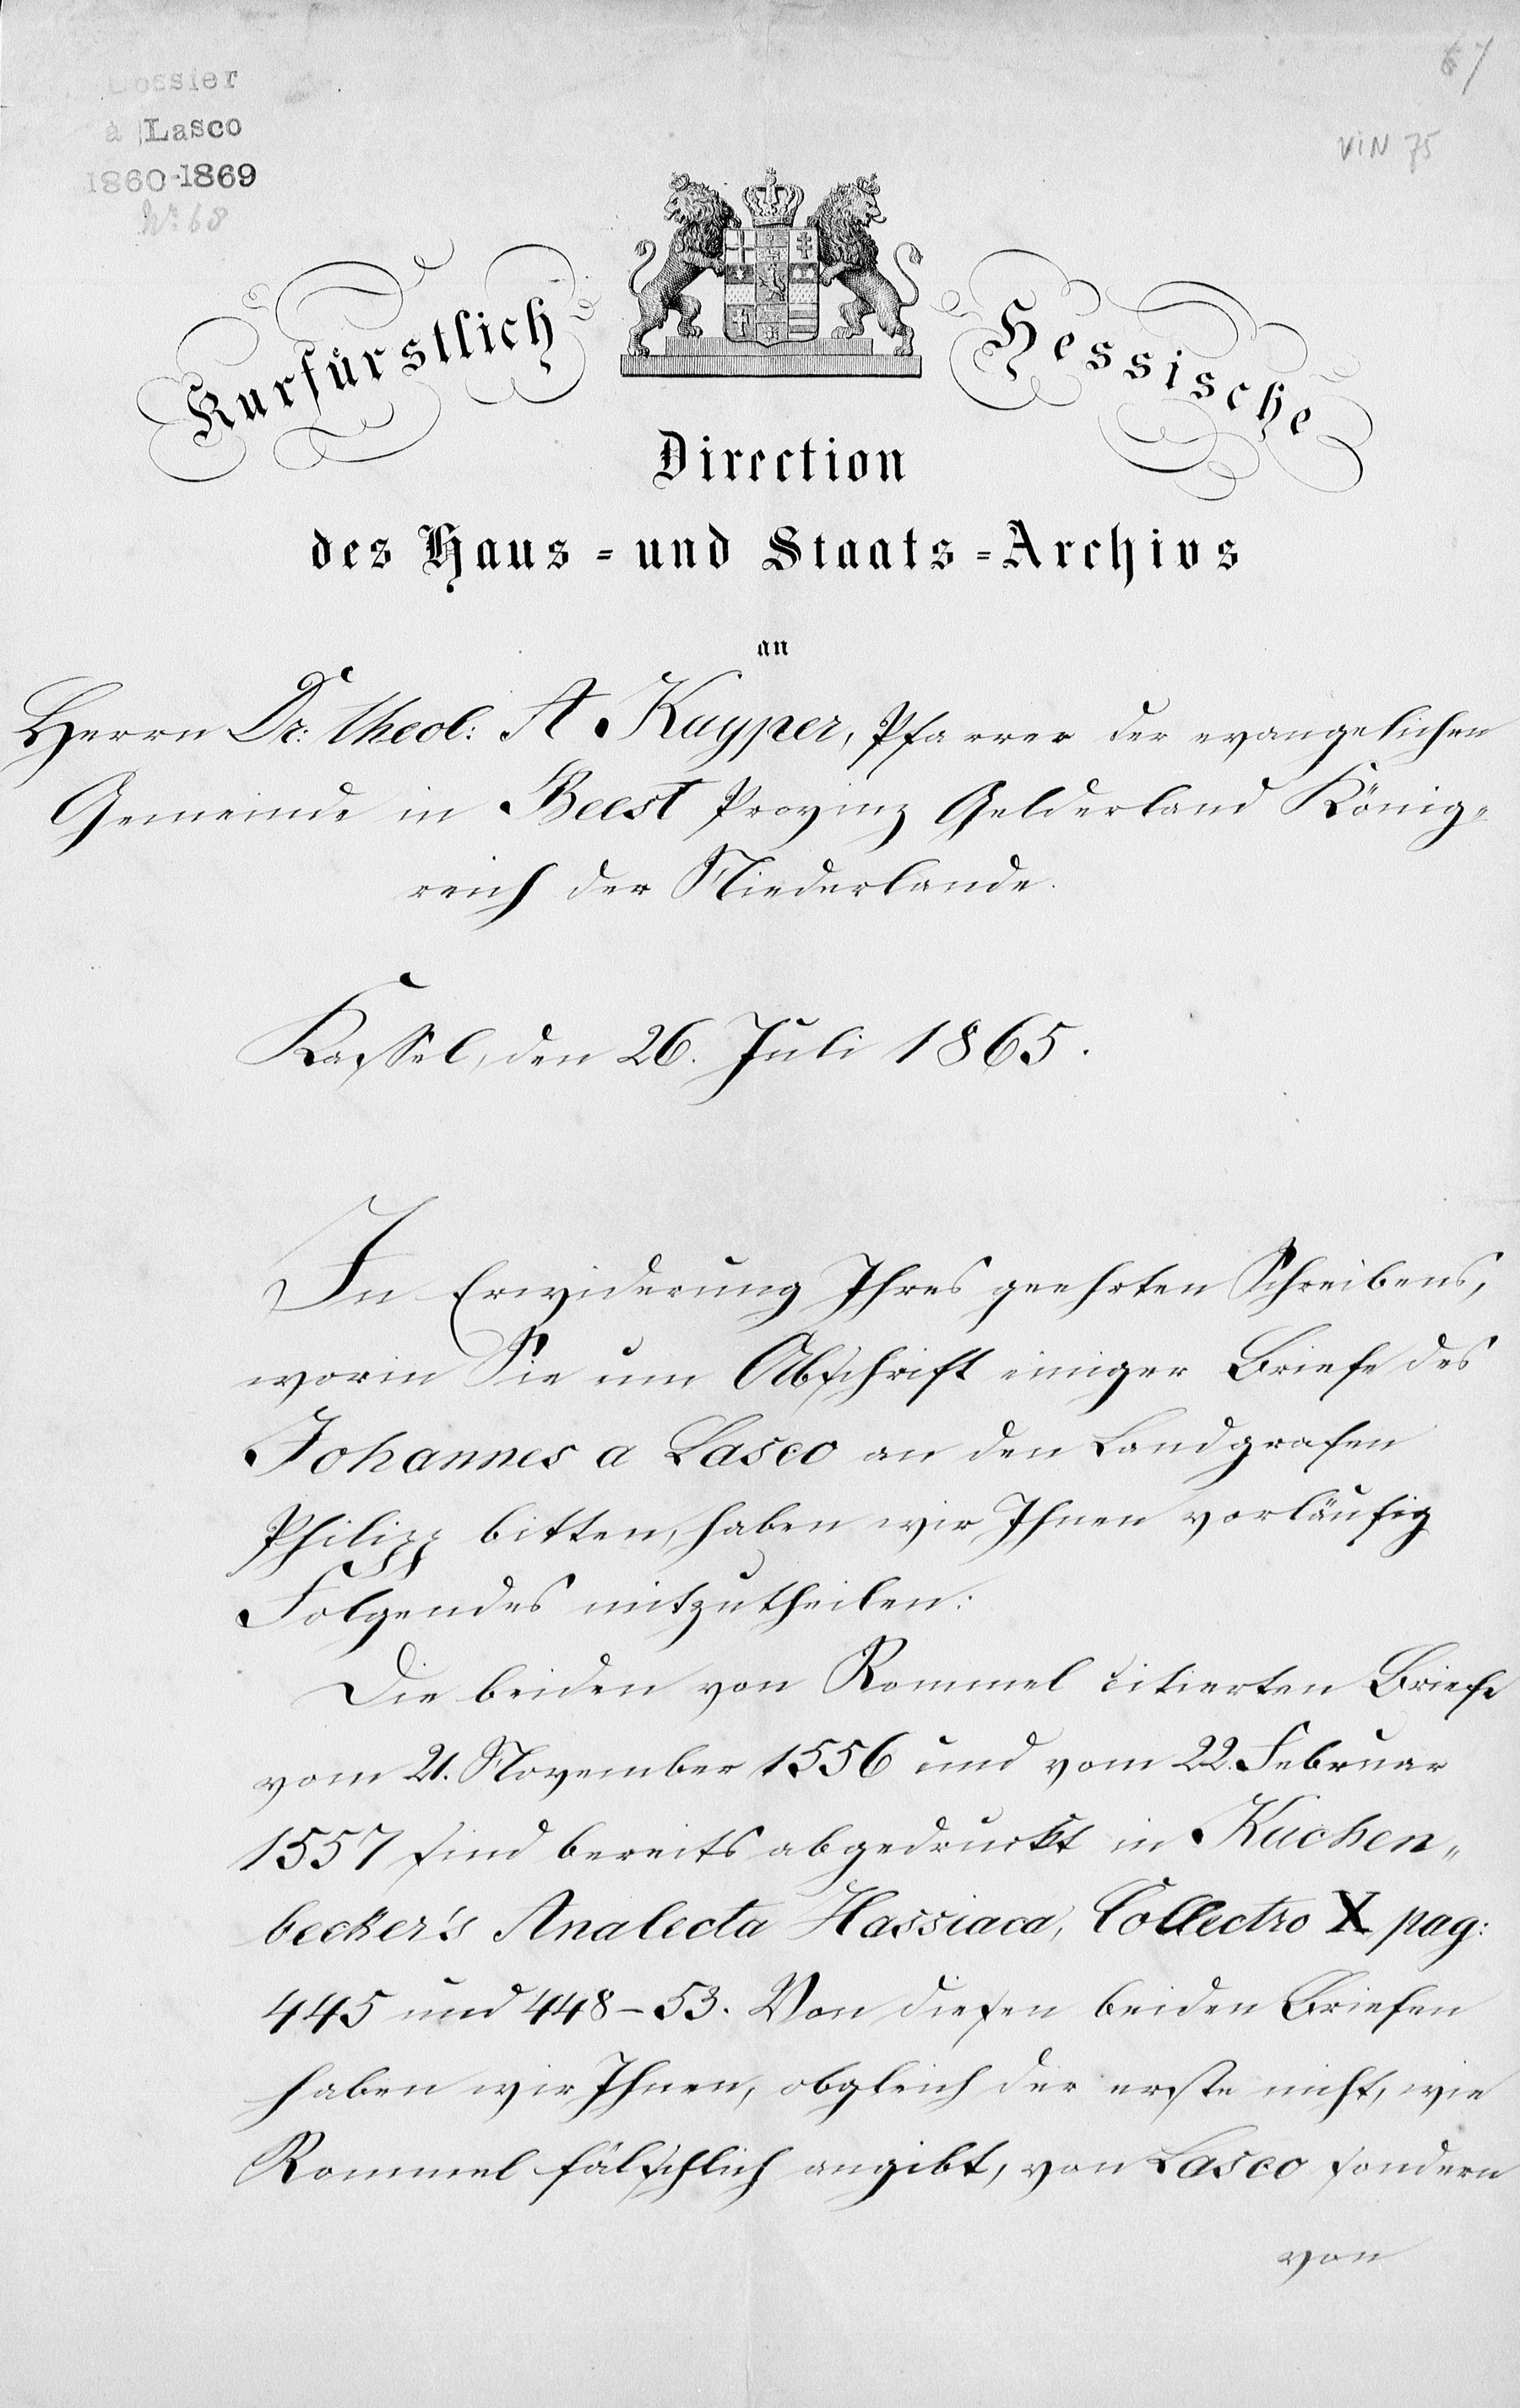 67
VIN 75
Dossier
à Lasco
1860-1869
No. 68
Kurfürstlich Hessische
Direction
des Haus- und Staats-Archivs
an
Herrn Dr. theol: A. Kuyper, Pfarrer der evangelichen
Gemeinde in Beest Provinz Gelderland König-
reich der Niederlande.
Kassel, den 26. Juli 1865.
In Erwiderung Ihres geehrten Schreibens,
worin Sie um Abschrift einiger Briefe des
Johannes a Lasco an den Landgrafen
Philipp bitten, haben wir Ihnen vorläufig
Folgendes mitzutheilen:
Die beiden von Rommel citierten Briefe
vom 21. November 1556 und vom 22. Februar
1557 sind bereits abgedruckt in Kuchen-
becker's Analecta Hassiaca, Collectio X pag:
445 und 448-53. Von diesen beiden Briefen
haben wir Ihnen, obgleich der erste nicht, wie
Rommel fälschlich angibt, von Lasco sondern
von